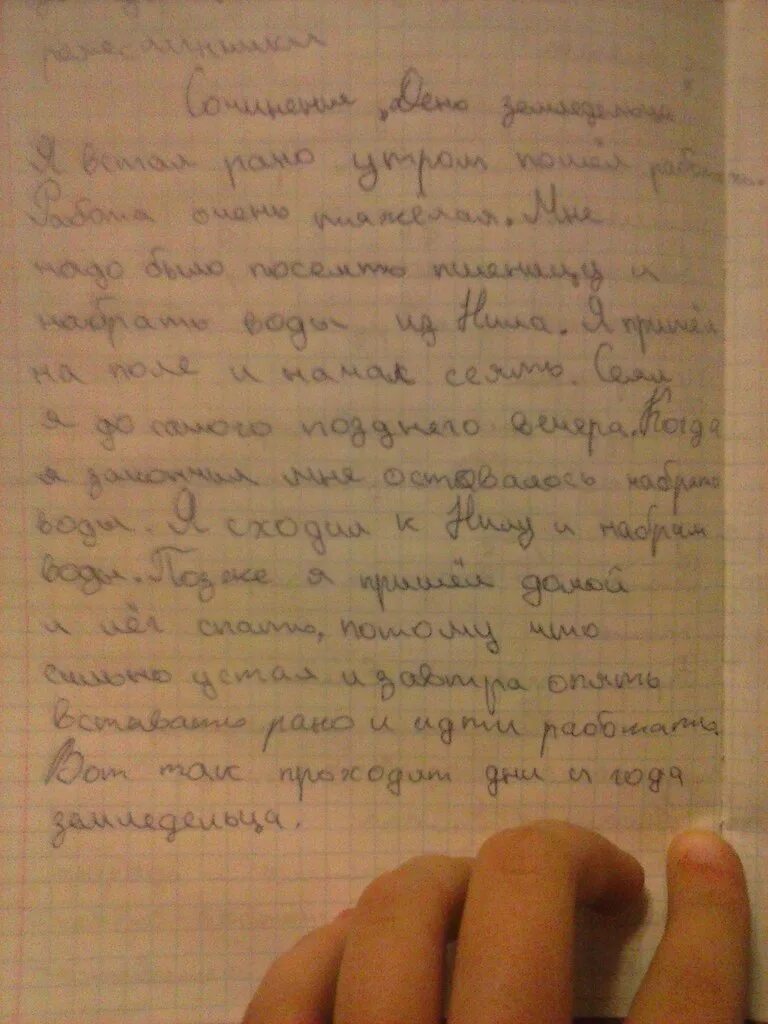 Сочинения „День земледельца"
Я встал рано утром пошёл работать.
Работа очень тяжёлая. Мне
надо было посеять пшеницу и
набрать воды из Нила. Я пришёл
на поле и начал сеять. Сеял
я до самого позднего вечера. Когда
я закончил мне оставалось набрать
воды. Я сходил к Нилу и набрал
воды. Позже я пришёл домой
и лёг спать, потому что
сильно устал и завтра опять
вставать рано и идти работать
Вот так проходят дни и года
земледельца.